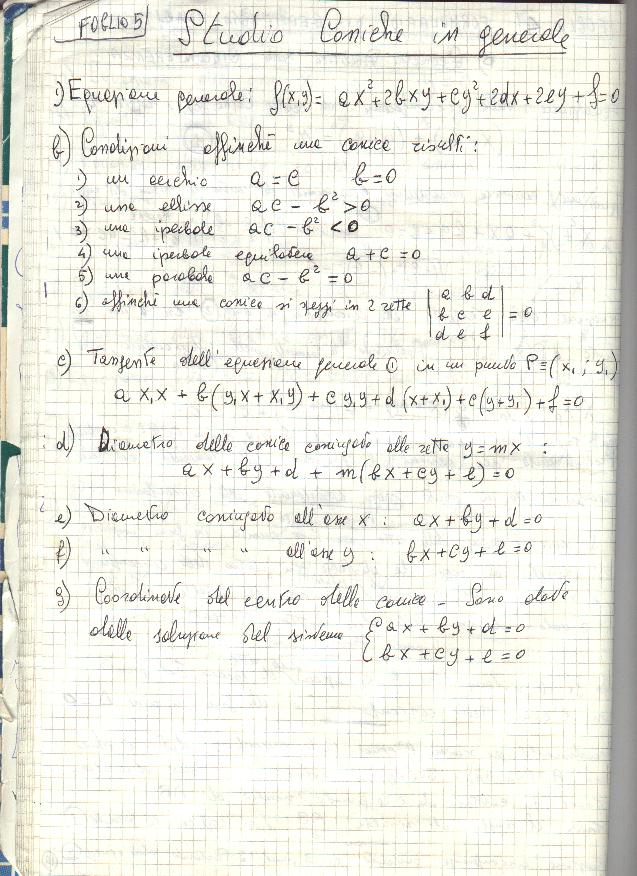 FOGLIO 5
Studio Coniche in generale
1) Equazione generale: f(x,y) = ax²+2bxy+cy²+2dx+2ey+f=0
b) Condizioni affinchè una conica risulti:
1) un cerchio a = c b=0
2) una ellisse ac - b² >0
3) una iperbole ac - b² <0
4) una iperbole equilatera a+c=0
5) una parabola ac - b² = 0
6) affinchè una conica si spezzi in 2 rette | a b d |
| b c e | = 0
| d e f |
c) Tangente dell'equazione generale ① in un punto P≡(x₁; y₁)
a x₁x + b(y₁x + x₁y) + c y₁y + d (x+x₁) + e(y+y₁) + f=0
d) Diametro della conica coniugato alla retta y=mx :
ax + by + d + m(bx + cy + e) = 0
e) Diametro coniugato all'asse x : ax+by+d=0
f) " " " " all'asse y : bx+cy+e=0
g) Coordinate del centro della conica - Sono date
dalla soluzione del sistema { ax + by + d = 0
bx + cy + e = 0